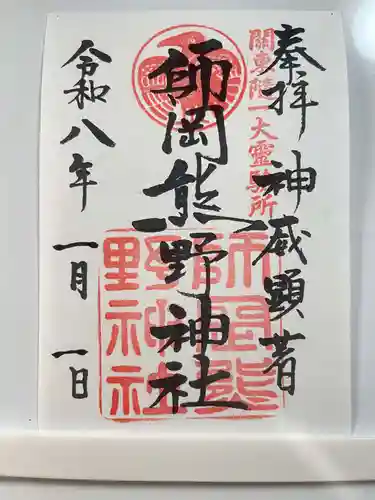 奉拝 神威顕著
關東隨一大霊験所
師岡熊野神社
師岡熊野神社
令和八年 一月 一日